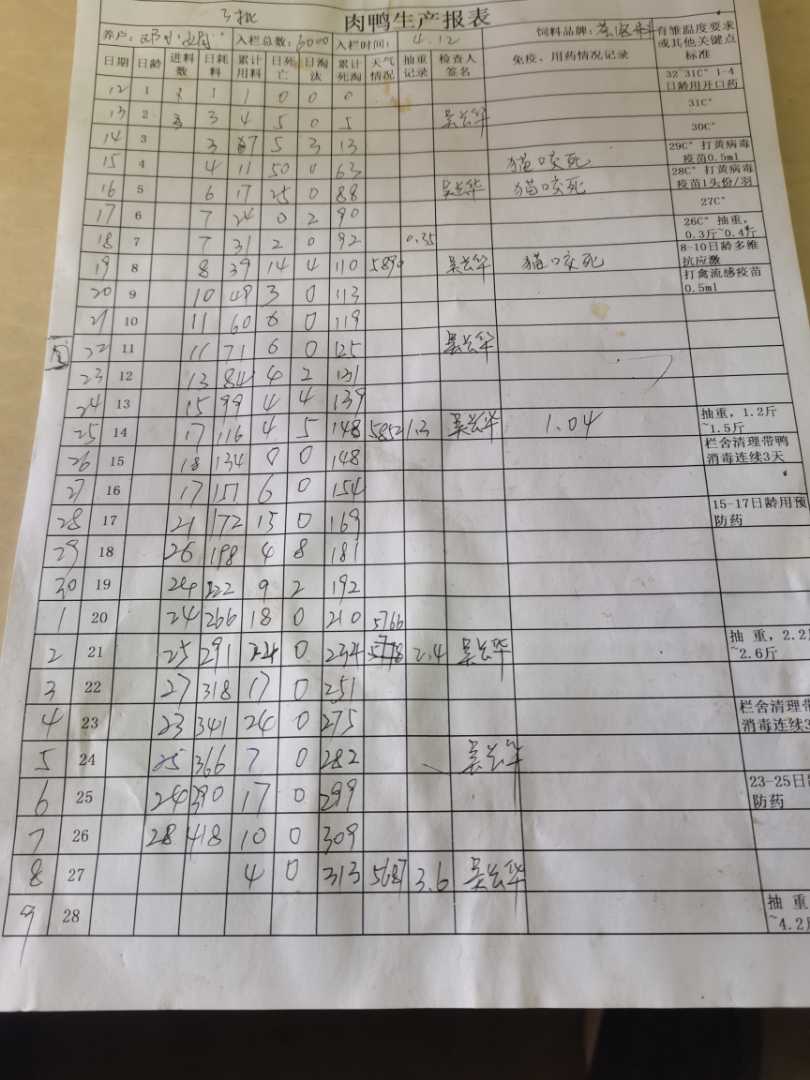 3批 肉鸭生产报表
养户： 入栏总数：6000 入栏时间：4.12 饲料品牌：
日期 日龄 进料数 日耗料 累计用料 日死亡 日淘汰 累计死淘 天气情况 抽重记录 检查人签名 免疫、用药情况记录 有雏温度要求或其他关键点标准
12 1 1 1 0 0 0 32 31C° 1-4日龄用开口药
13 2 3 3 4 5 0 5 吴兴华 31C°
14 3 3 7 5 3 13 30C°
15 4 4 11 50 0 63 猫咬死 29C° 打黄病毒疫苗0.5ml
16 5 6 17 25 0 88 吴兴华 猫咬死 28C° 打黄病毒疫苗1头份/羽
17 6 7 24 0 2 90 27C°
18 7 7 31 2 0 92 0.35 26C° 抽重，0.3斤~0.4斤
19 8 8 39 14 4 110 5890 吴兴华 猫咬死 8-10日龄多维抗应激
20 9 10 49 3 0 113 打禽流感疫苗0.5ml
21 10 11 60 6 0 119
22 11 11 71 6 0 125 吴兴华
23 12 13 84 4 2 131
24 13 15 99 4 4 139
25 14 17 116 4 5 148 5852 1.3 吴兴华 1.04 抽重，1.2斤~1.5斤
26 15 18 134 0 0 148 栏舍清理带鸭消毒连续3天
27 16 17 151 6 0 154
28 17 21 172 15 0 169 15-17日龄用预防药
29 18 26 198 4 8 181
30 19 24 222 9 2 192
1 20 24 266 18 0 210 5766
2 21 25 291 24 0 234 2.4 吴兴华 抽重，2.2~2.6斤
3 22 27 318 17 0 251
4 23 23 341 24 0 275 栏舍清理带 消毒连续3
5 24 25 366 7 0 282 吴兴华
6 25 24 390 17 0 299 23-25日 防药
7 26 28 418 10 0 309
8 27 4 0 313 5687 3.6 吴兴华
9 28 抽重 ~4.2